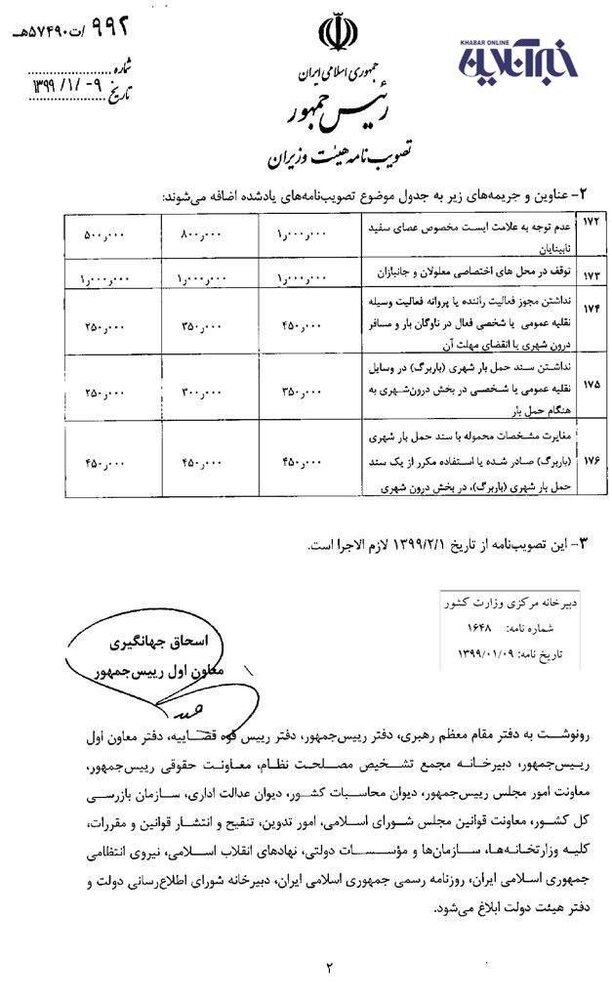 ۹۹۲ /ت۵۷۴۹۰هـ
شماره
تاریخ ۱۳۹۹/۱/۰۹
جمهوری اسلامی ایران
رئیس جمهور
تصویب نامه هیئت وزیران
KHABAR ONLINE
خبرآنلاین
۲- عناوین و جریمه‌های زیر به جدول موضوع تصویب‌نامه‌های یادشده اضافه می‌شوند:
۱۷۲ عدم توجه به علامت ایست مخصوص عصای سفید ۱٫۰۰۰٫۰۰۰ ۸۰۰٫۰۰۰ ۵۰۰٫۰۰۰
نابینایان
۱۷۳ توقف در محل های اختصاصی معلولان و جانبازان ۱٫۰۰۰٫۰۰۰ ۱٫۰۰۰٫۰۰۰ ۱٫۰۰۰٫۰۰۰
۱۷۴ نداشتن مجوز فعالیت راننده یا پروانه فعالیت وسیله
نقلیه عمومی یا شخصی فعال در ناوگان بار و مسافر ۴۵۰٫۰۰۰ ۳۵۰٫۰۰۰ ۲۵۰٫۰۰۰
درون شهری یا انقضای مهلت آن
نداشتن سند حمل بار شهری (باربرگ) در وسایل
۱۷۵ نقلیه عمومی یا شخصی در بخش درون‌شهری به ۳۵۰٫۰۰۰ ۳۰۰٫۰۰۰ ۲۵۰٫۰۰۰
هنگام حمل بار
مغایرت مشخصات محموله با سند حمل بار شهری
۱۷۶ (باربرگ) صادر شده یا استفاده مکرر از یک سند ۴۵۰٫۰۰۰ ۴۵۰٫۰۰۰ ۴۵۰٫۰۰۰
حمل بار شهری (باربرگ)، در بخش درون شهری
۳- این تصویب‌نامه از تاریخ ۱۳۹۹/۲/۱ لازم الاجرا است.
دبیرخانه مرکزی وزارت کشور
شماره نامه: ۱۶۴۸
تاریخ نامه: ۱۳۹۹/۰۱/۰۹
اسحاق جهانگیری
معاون اول رییس‌جمهور
رونوشت به دفتر مقام معظم رهبری، دفتر رییس‌جمهور، دفتر رییس قوه قضاییه، دفتر معاون اول
رییس‌جمهور، دبیرخانه مجمع تشخیص مصلحت نظام، معاونت حقوقی رییس‌جمهور،
معاونت امور مجلس رییس‌جمهور، دیوان محاسبات کشور، دیوان عدالت اداری، سازمان بازرسی
کل کشور، معاونت قوانین مجلس شورای اسلامی، امور تدوین، تنقیح و انتشار قوانین و مقررات،
کلیه وزارتخانه‌ها، سازمان‌ها و مؤسسات دولتی، نهادهای انقلاب اسلامی، نیروی انتظامی
جمهوری اسلامی ایران، روزنامه رسمی جمهوری اسلامی ایران، دبیرخانه شورای اطلاع‌رسانی دولت و
دفتر هیئت دولت ابلاغ می‌شود.
۲